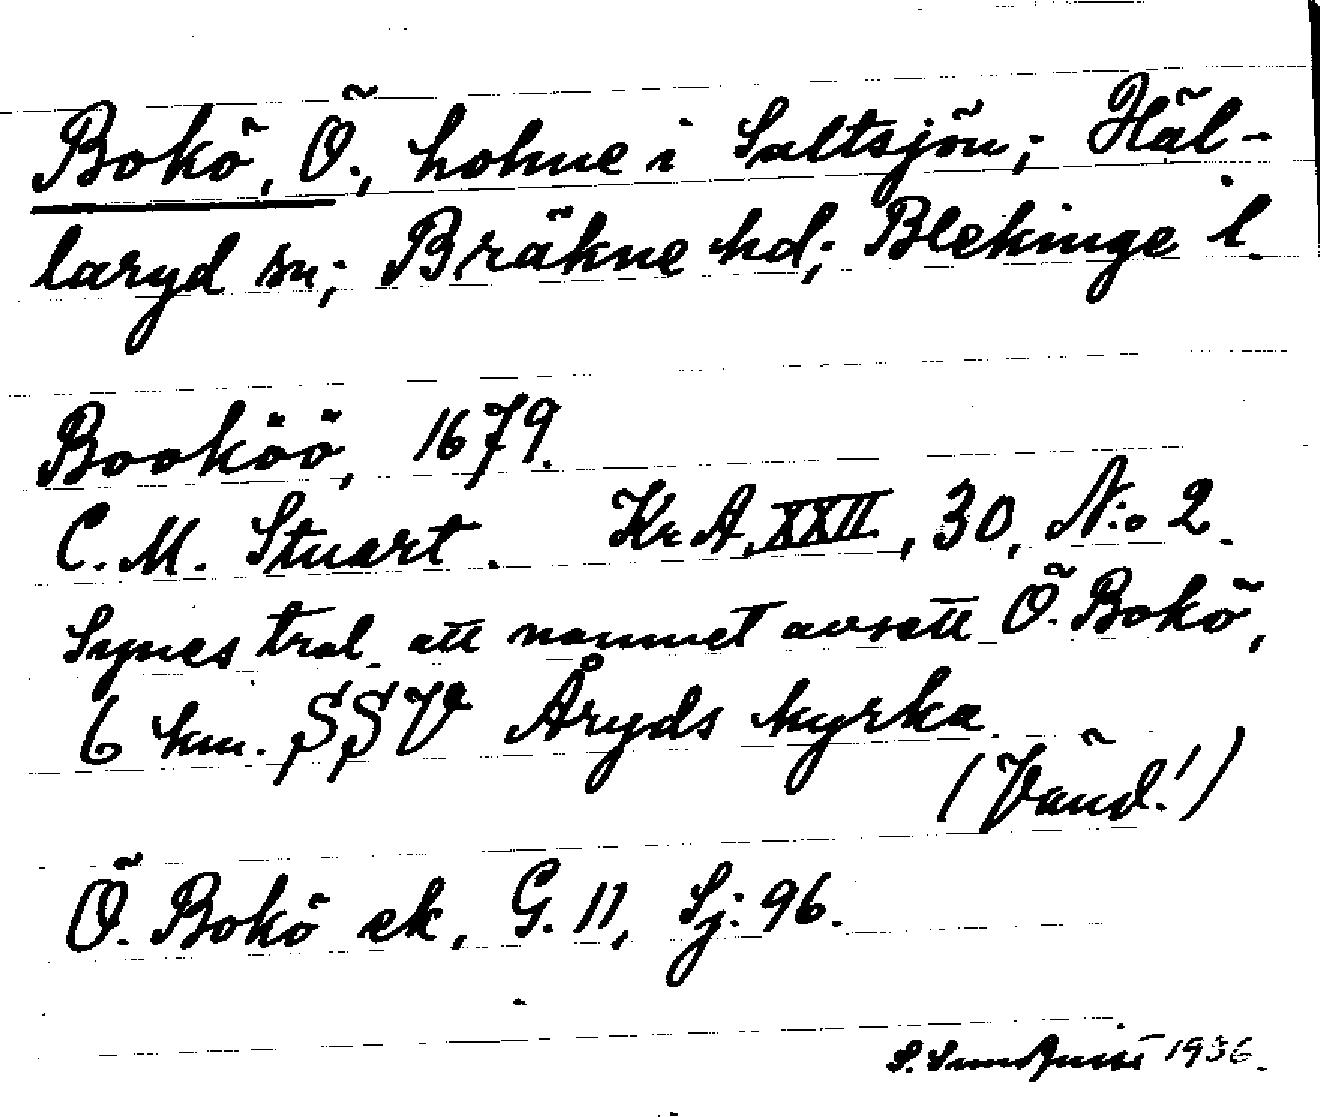 Bokö, Ö., holme i Saltsjön; Häl-
laryd sn; Bräkne hd; Blekinge l.
Booköö, 1679.
C. M. Stuart. Kr. A, XXII, 30, N:o 2.
Synes tral. att namnet avsett Ö. Bokö,
6 km. SSV Åryds kyrka.
(Vänd!)
Ö. Bokö ek, G. 11, Sj: 96.
S. Sundquist 1936.